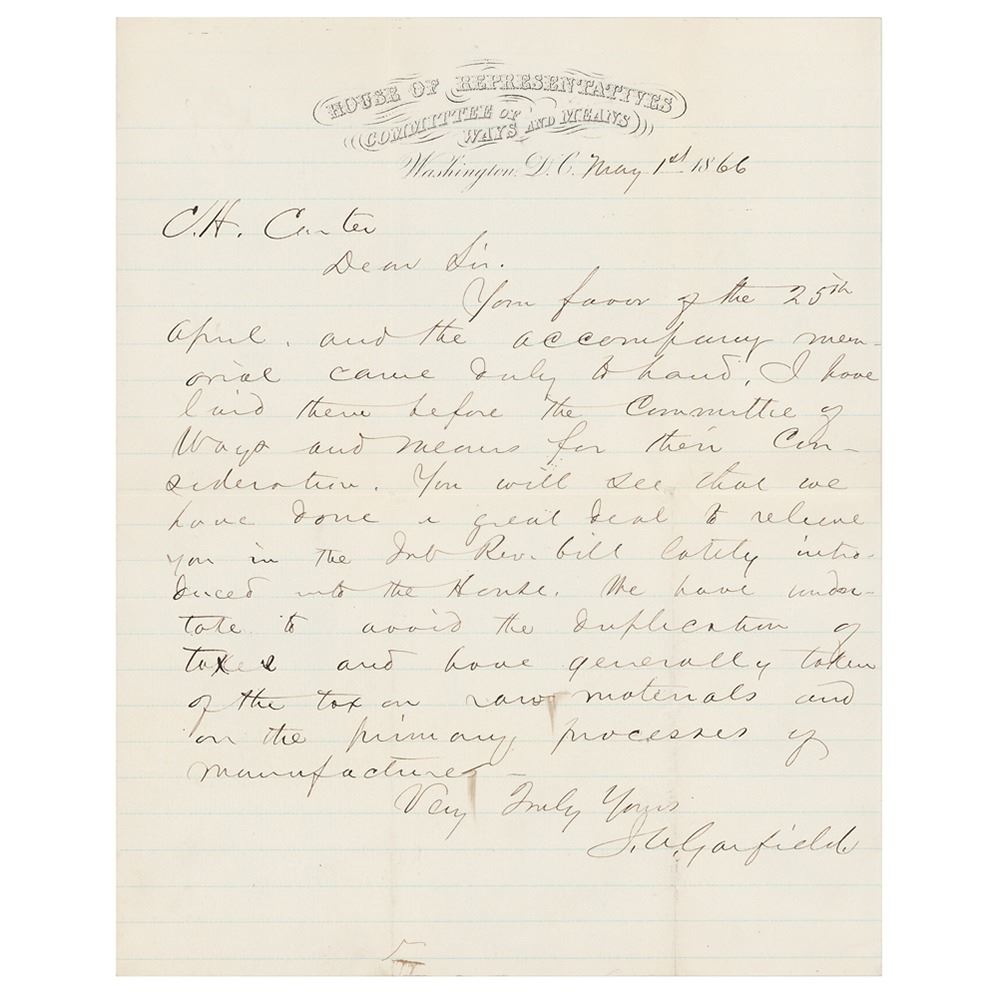 HOUSE OF REPRESENTATIVES
COMMITTEE OF WAYS AND MEANS
Washington, D.C. May 1st 1866
C.H. Carter
Dear Sir.
Your favor of the 25th
April, and the accompany mem-
orial came duly to hand, I have
laid them before the Committee of
Ways and Means for their Con-
sideration. You will see that we
have done a great deal to relieve
you in the Int Rev. bill lately intro-
duced into the House. We have under-
tate to avoid the duplication of
taxes and have generally taken
of the tax on raw materials and
on the primary processes of
manufactures -
Very Truly Yours
J.A. Garfield.